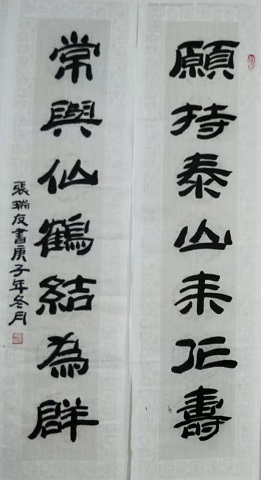 願持泰山来作壽
常與仙鶴結為群
張瑞友書庚子年冬月